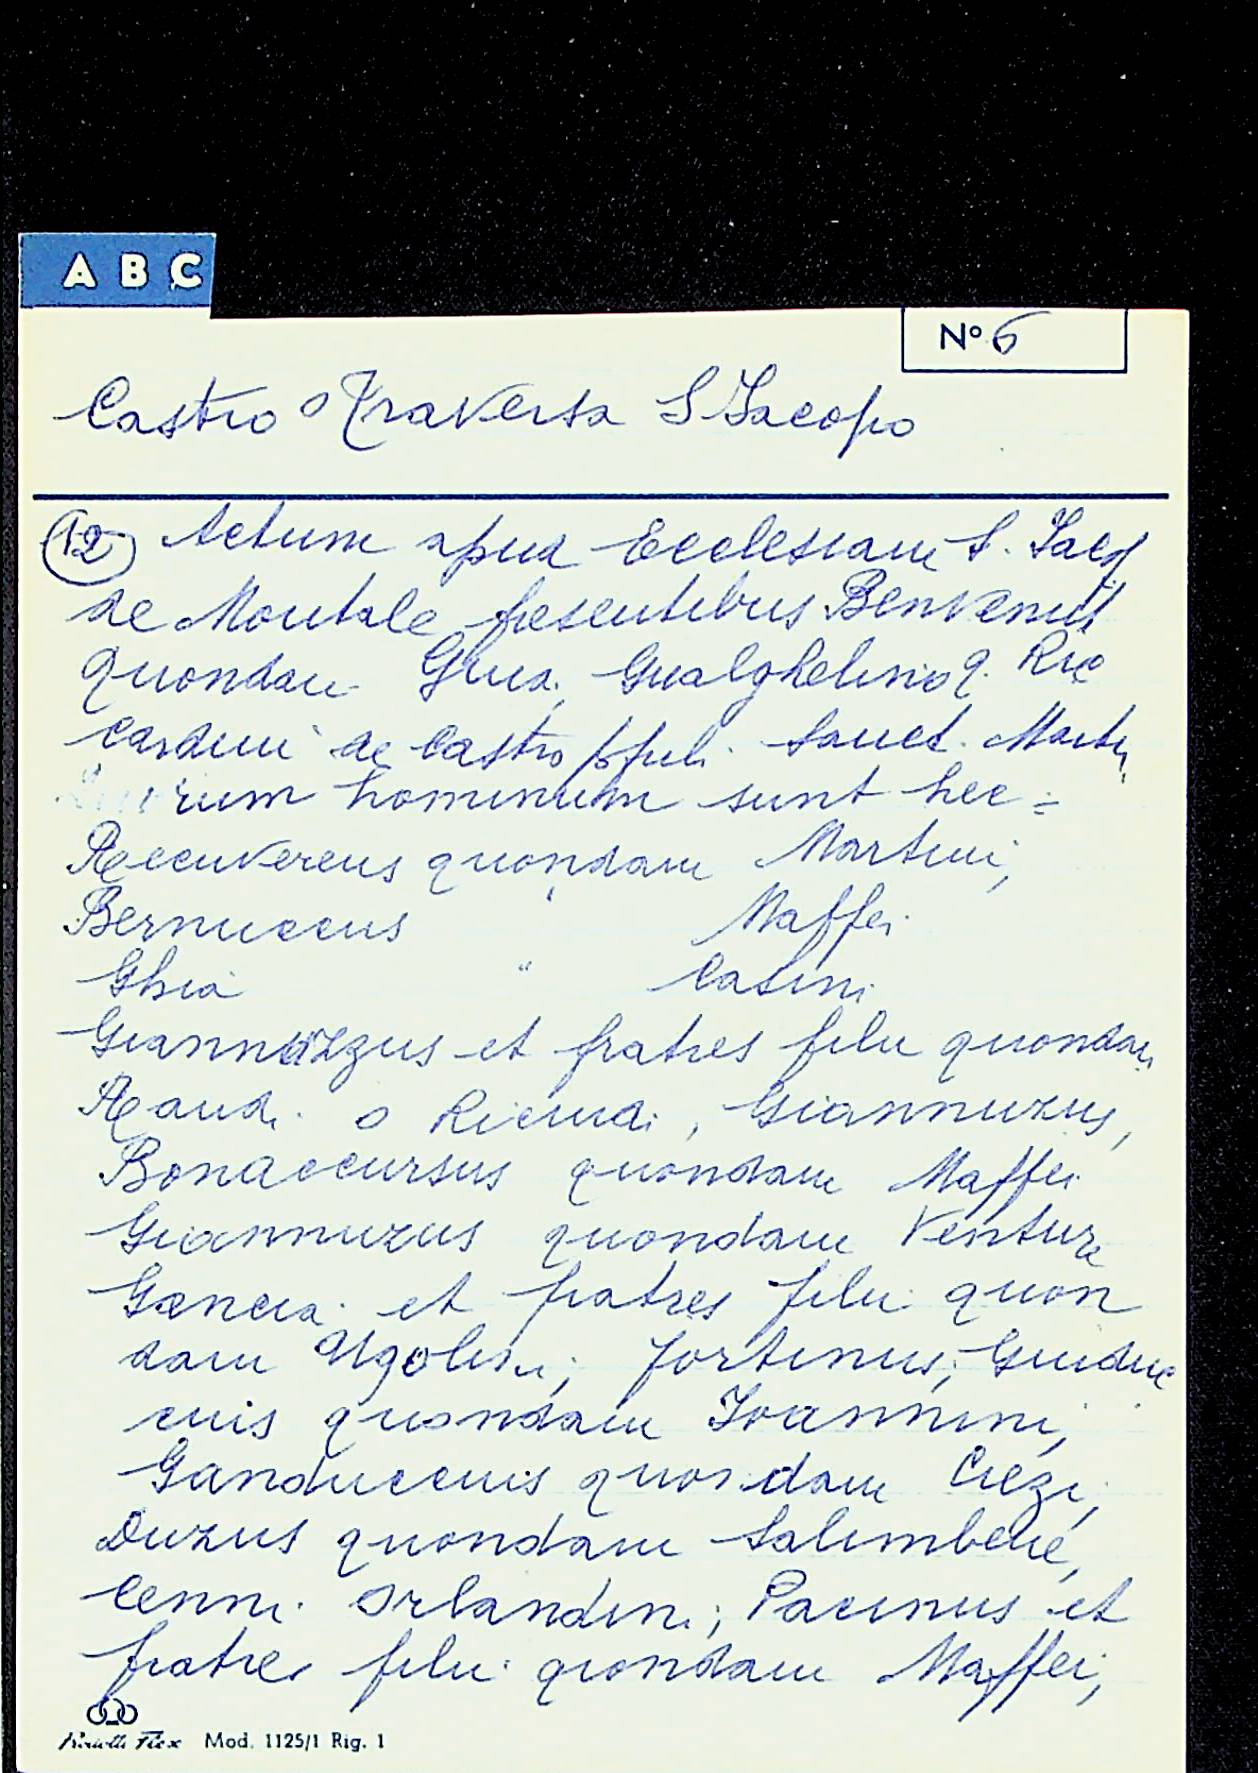 A B C
Nº 6
Castro o Traversa S Iacopo
12 Actum apud Ecclesiam S. Iacop
de Montale presentibus Benvenut
quondam Ghua. Gualghelino q. Ric
cardini de Castro ppuli Sanct. Martin
rum hominum sunt hec =
Reccuverus quondam Martini,
Bernuccus " Maffei
Ghia " Catini
Giannuzzus et fratres filii quondam
Raudi o Ricuidi, Giannuzus,
Bonaccursus quondam Maffei
Giannuzus quondam Venture
Gancia et fratres filii quon
dam Ugolini; Fortinus, Guiduc
cuis quondam Ioannini,
Ganduccuis quondam
Duzus quondam Salimbene,
Cenni Orlandini; Pacinus et
fratres filii quondam Maffei,
Flex Mod. 1125/1 Rig. 1